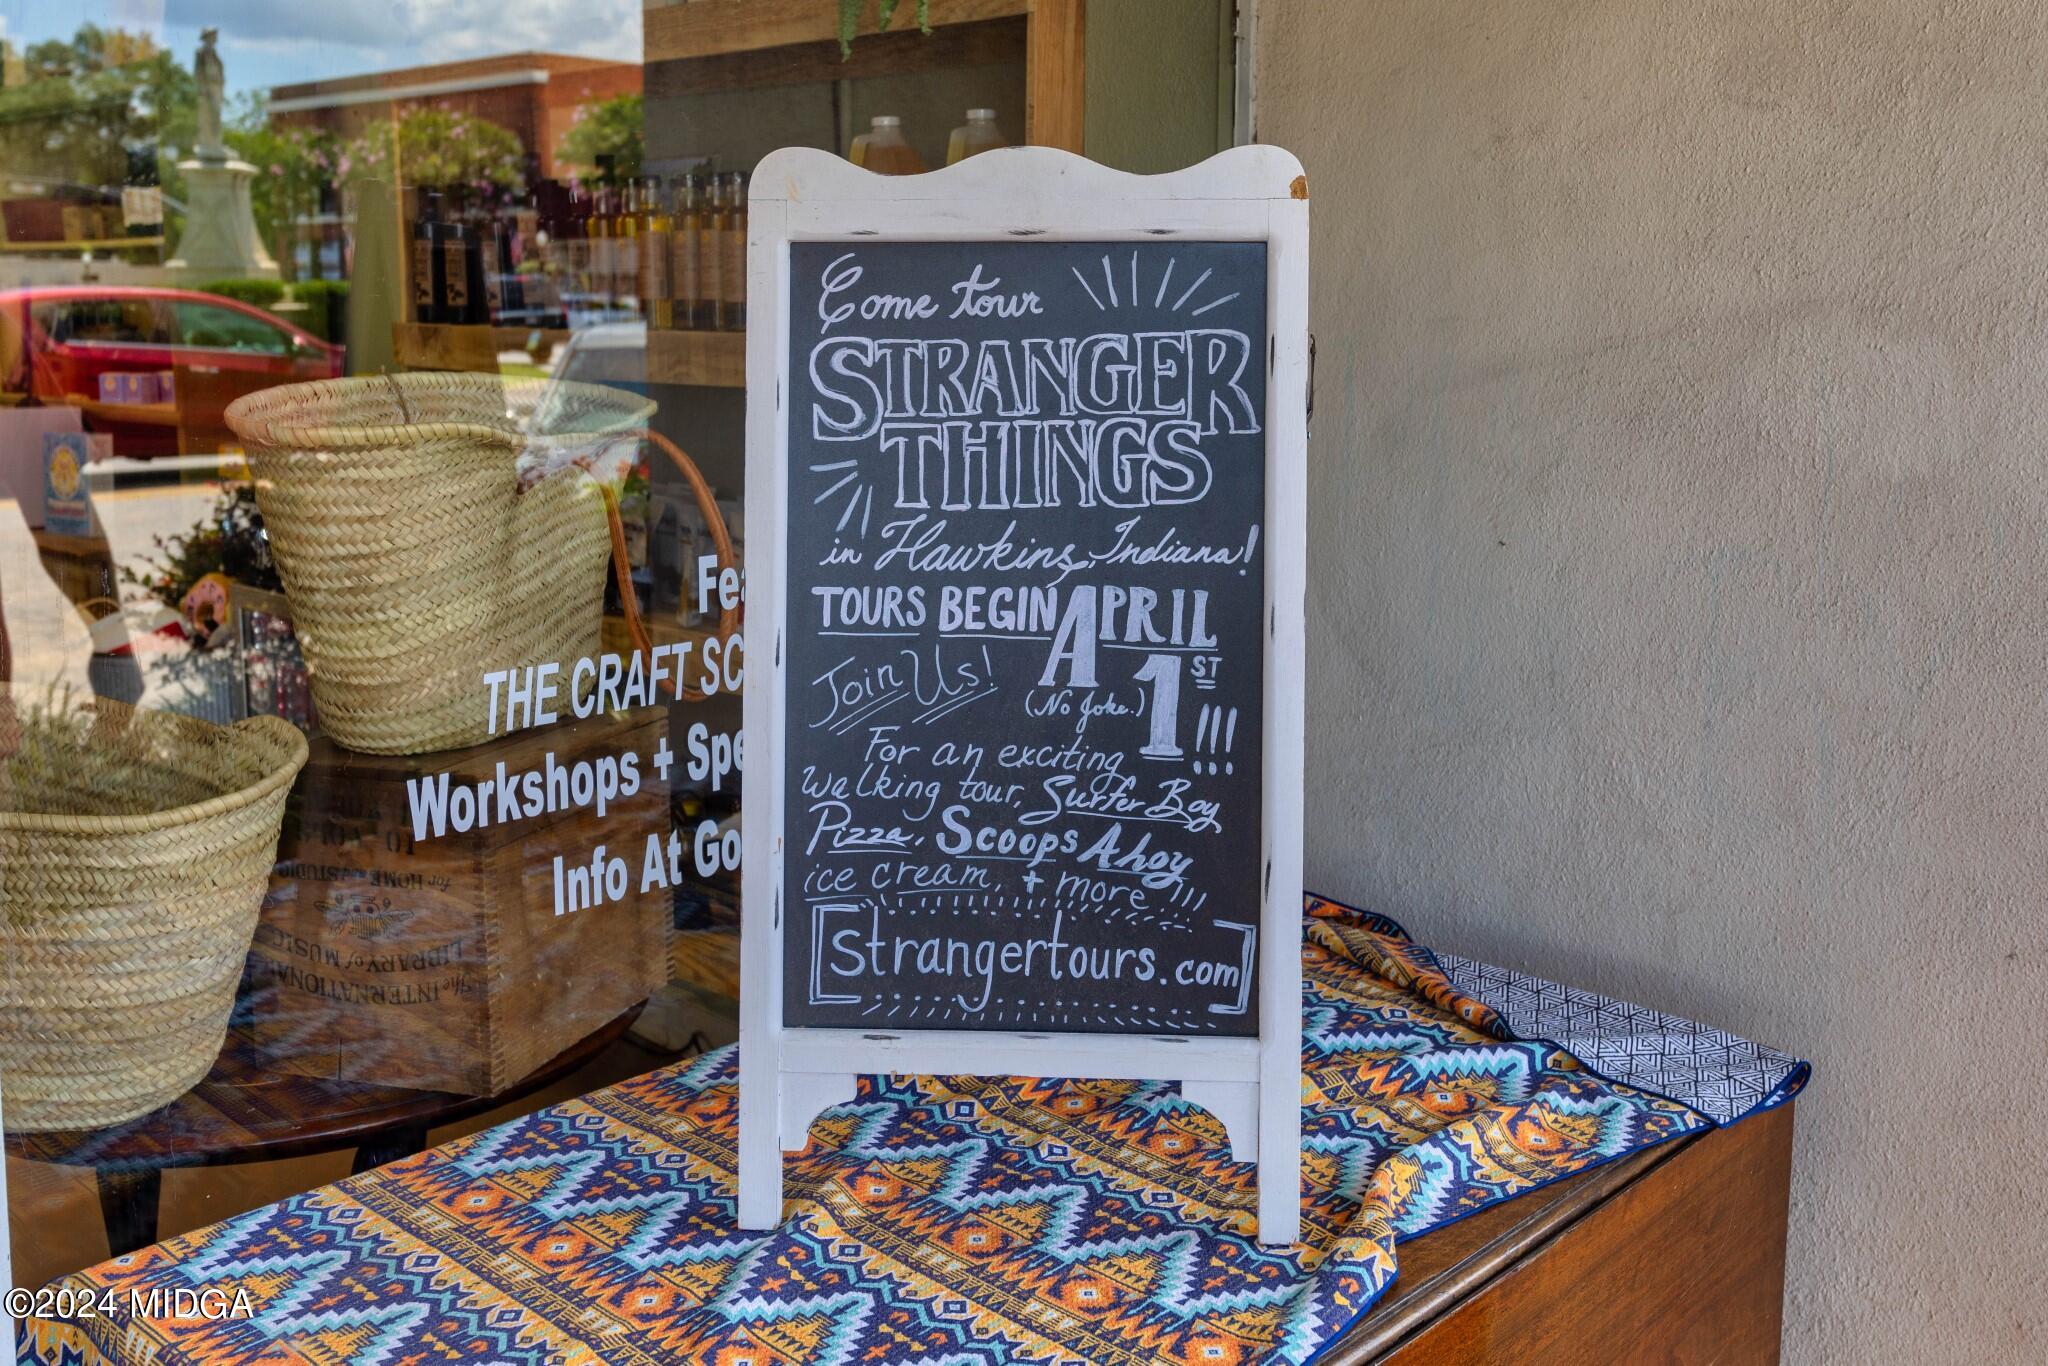 Come tour
STRANGER
THINGS
in Hawkins, Indiana!
TOURS BEGIN APRIL
1ST!!!
Join Us!
(No Joke.)
For an exciting
walking tour, Surfer Boy
Pizza, Scoops Ahoy
ice cream, + more!!!
[strangertours.com]
THE CRAFT
Workshops +
Info At
The INTERNATIONAL
LIBRARY of MUSIC
for HOME and STUDIO
©2024 MIDGA